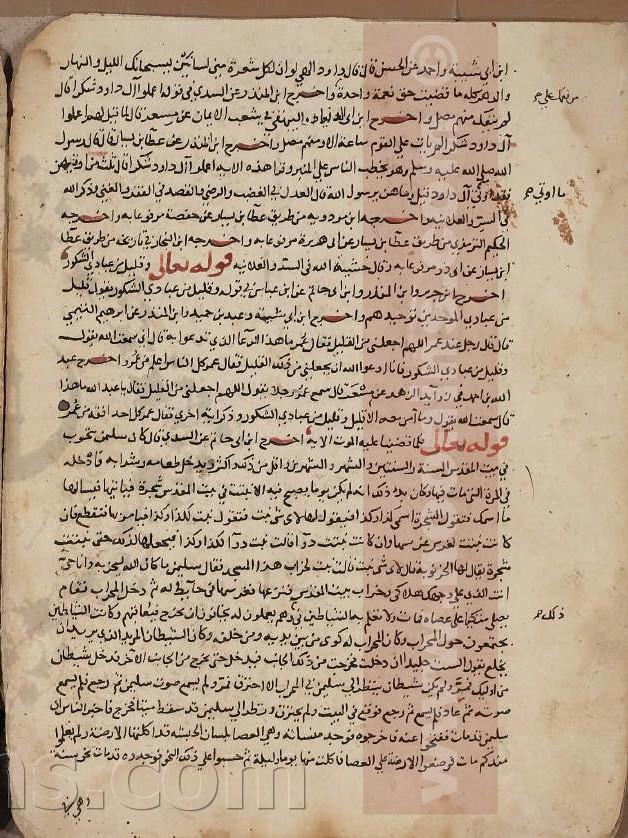 ابن ابي شيبة واحمد عن الحسن قال قال داود الهي لو ان لكل شعرة مني لسانين يسبحانك الليل والنهار
والدهر كله ما قضيت حق نعمة واحدة واخرج ابن المنذر عن السدي في قوله اعملوا آل داود شكرا قال
لم ينفك منهم مصل واخرج ابن ابي الدنيا والبيهقي في شعب الايمان عن مسعر قال لما قيل لهم اعملوا
آل داود شكرا لم يأت على القوم ساعة الا ومنهم مصل واخرج ابن المنذر عن عطا بن يسار قال قال رسول
الله صلى الله عليه وسلم وهو يخطب الناس على المنبر وقرأ هذه الاية اعملوا آل داود شكرا قال ثلث من اوتيهن
فقد اوتي آل داود قيل وما هن يرسول الله قال العدل في الغضب والرضى والقصد في الفقر والغنى لذكر الله
في السر والعلانية واخرجه ابن مردويه من طريق عطا بن يسار عن حفصة مرفوعا به واخرجه
الحكيم الترمذي من طريق عطا بن يسار عن ابي هريرة مرفوعا به واخرجه ابن النجار في تاريخه من طريق عطا
ابن يسار عن ابي ذر مرفوعا به وقال خشية الله في السر والعلانية قوله تعالى وقليل من عبادي الشكور
اخرج ابن جرير وابن المنذر وابن ابي حاتم عن ابن عباس في قوله وقليل من عبادي الشكور يقول قليل
من عبادي الموحدين توحيدهم واخرج ابن ابي شيبة وعبد بن حميد وابن المنذر عن ابرهيم التيمي
قال قال رجل عند عمر اللهم اجعلني من القليل فقال عمر ما هذا الدعا الذي تدعوا به قال اني سمعت الله يقول
وقليل من عبادي الشكور فانا ادعوا الله ان يجعلني من ذلك القليل فقال عمر كل الناس اعلم من عمر واخرج عبد
الله بن احمد في زوايد الزهد عن قال سمع عمر رجلا يقول اللهم اجعلني من القليل فقال يا عبد الله ما هذا
قال سمعت الله يقول وما آمن معه الا قليل وقليل من عبادي الشكور وذكر اية اخرى فقال عمر كل احد افقه من عمر
قوله تعالى فلما قضينا عليه الموت الاية اخرج ابن ابي حاتم عن السدي قال كان سليمن
في بيت المقدس السنة والسنتين والشهر والشهرين واقل من ذلك واكثر يدخل طعامه وشرابه فادخله
في المرة التي مات فيها وكان بدء ذلك انه لم يكن يوما يصبح فيه الا نبتت في بيت المقدس شجرة فياتيها فيسالها
ما اسمك فتقول الشجرة اسمي كذا وكذا فيقول لها لاي شي نبت فتقول نبت لكذا وكذا فيامر بها فتقطع فان
كانت نبتت لغرس غرسها وان كانت نبتت دوآ قالت نبت دوآ لكذا وكذا فيجعلها لذلك حتى نبتت
شجرة يقال لها الخرنوبة قال لاي شي نبت قالت نبت لخراب هذا المسجد فقال سليمن ما كان الله ليخربه وانا حي
انت الذي على وجهك هلاكي وخراب بيت المقدس فنزعها فغرسها في حايط له ثم دخل المحراب فقام
يصلي متكيا على عصاه فمات ولا تعلم به الشياطين في ذلك وهم يعملون له يخافون ان يخرج فيعاقبهم وكانت الشياطين
يجتمعون حول المحراب وكان المحراب له كوى من بين يديه ومن خلفه وكان الشيطان المريد الذي يريد ان
يخلع يقول الست جليدا ان دخلت فخرجت من ذلك الجانب فيدخل حتى يخرج من الجانب الآخر فدخل شيطان
من اوليك فمر ولم يكن شيطان ينظر الى سليمن في المحراب الا احترق فمر ولم يسمع صوت سليمن ثم رجع فلم يسمع
صوته ثم عاد فلم يسمع ثم رجع فوقع في البيت ولم يحترق ونظر الى سليمن قد سقط ميتا فخرج فاخبر الناس ان
سليمن قد مات ففتحوا عنه فاخرجوه فوجدوا منساته وهي العصا بلسان الحبشة قد اكلتها الارضة ولم يعلموا
منذ كم مات فوضعوا الارضة على العصا فاكلت منها يوما وليلة ثم حسبوا على ذلك النحو فوجدوه قد مات نحو سنة
من نعمك علي صح
ما اوتي صح
ذلك صح
وهي